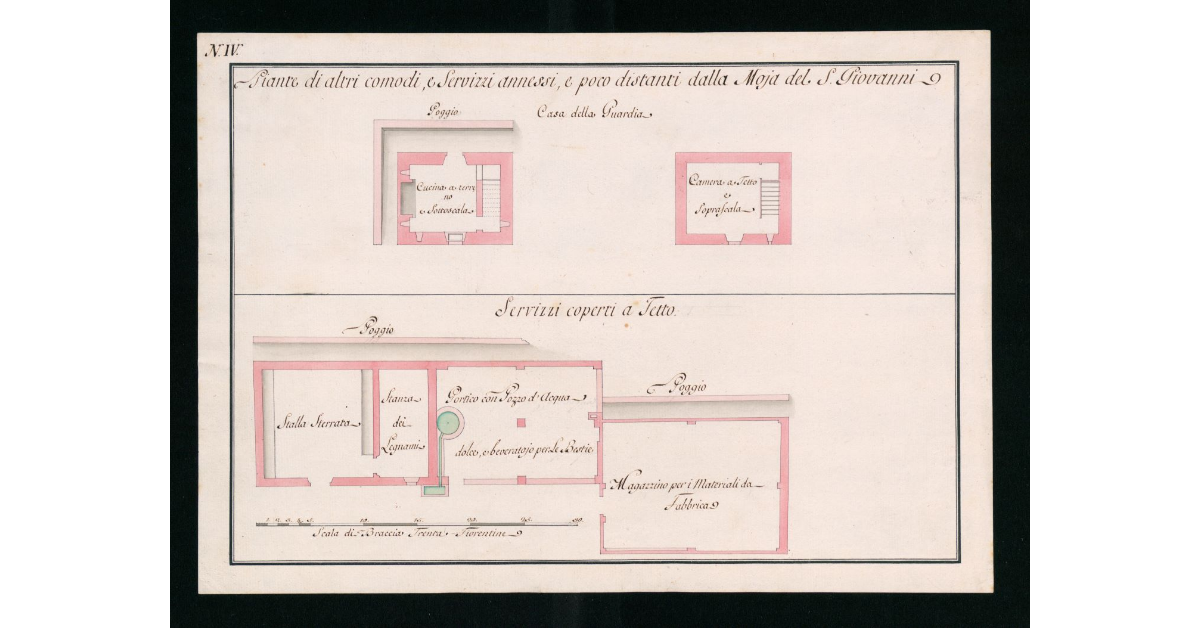 N. IV.
Piante di altri comodi, e Servizzi annessi, e poco distanti dalla Moja del S. Giovanni
Poggio
Casa della Guardia
Cucina a terre
no
e Sottoscala
Camera a Tetto
e
Soprascala
Servizzi coperti a Tetto.
Poggio
Poggio
Stalla Sterrata
Stanza
dei
Legnami
Portico con Pozzo d'Acqua
dolce, e beveratojo per le Bestie
Magazzino per i Materiali da
Fabbrica
1. 2. 3. 4. 5. 10. 15. 20. 25. 30.
Scala di Braccia Trenta Fiorentine